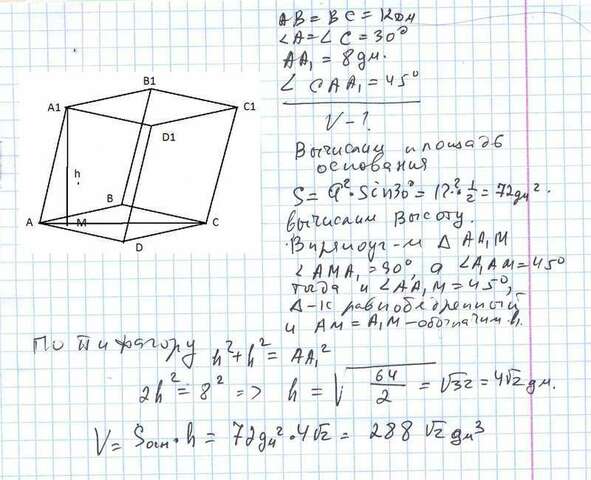 AB = BC = 12 дм
∠A = ∠C = 30°
AA₁ = 8 дм.
∠ CAA₁ = 45°
V - ?
Вычислим площадь
основания
S = a²·Sin30° = 12²·1/2 = 72 дм².
вычислим высоту.
В прямоуг-м Δ AA₁M
∠AMA₁ = 90°, а ∠A₁AM = 45°
тогда и ∠AA₁M = 45°,
Δ-к равнобедренный
и AM = A₁M - обозначим h.
По пифагору h² + h² = AA₁²
2h² = 8² => h = √64/2 = √32 = 4√2 дм.
V = Sосн·h = 72дм²·4√2 = 288 √2 дм³
B1
A1
C1
D1
h
B
A
M
C
D